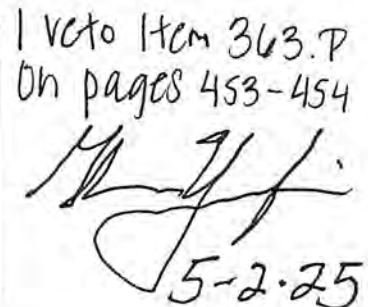 I veto Item 363.P
On pages 453-454
5-2-25